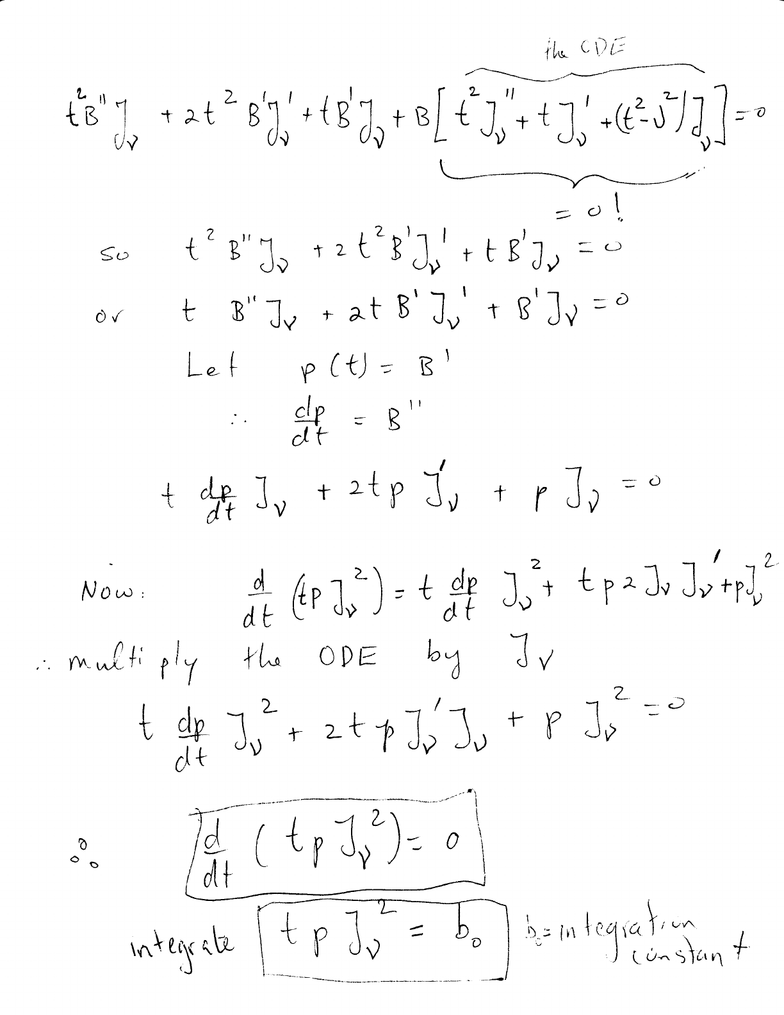 the ODE
t²B''J_ν + 2t²B'J_ν' + tB'J_ν + B[t²J_ν'' + tJ_ν' + (t²-ν²)J_ν] = 0
= 0!
so t²B''J_ν + 2t²B'J_ν' + tB'J_ν = 0
or t B''J_ν + 2t B'J_ν' + B'J_ν = 0
Let p(t) = B'
∴ dp/dt = B''
t dp/dt J_ν + 2tp J_ν' + p J_ν = 0
Now: d/dt (tp J_ν²) = t dp/dt J_ν² + tp2J_ν J_ν' + pJ_ν²
∴ multiply the ODE by J_ν
t dp/dt J_ν² + 2tp J_ν' J_ν + p J_ν² = 0
∴ d/dt (tp J_ν²) = 0
integrate tp J_ν² = b₀ b₀ = integration
constant